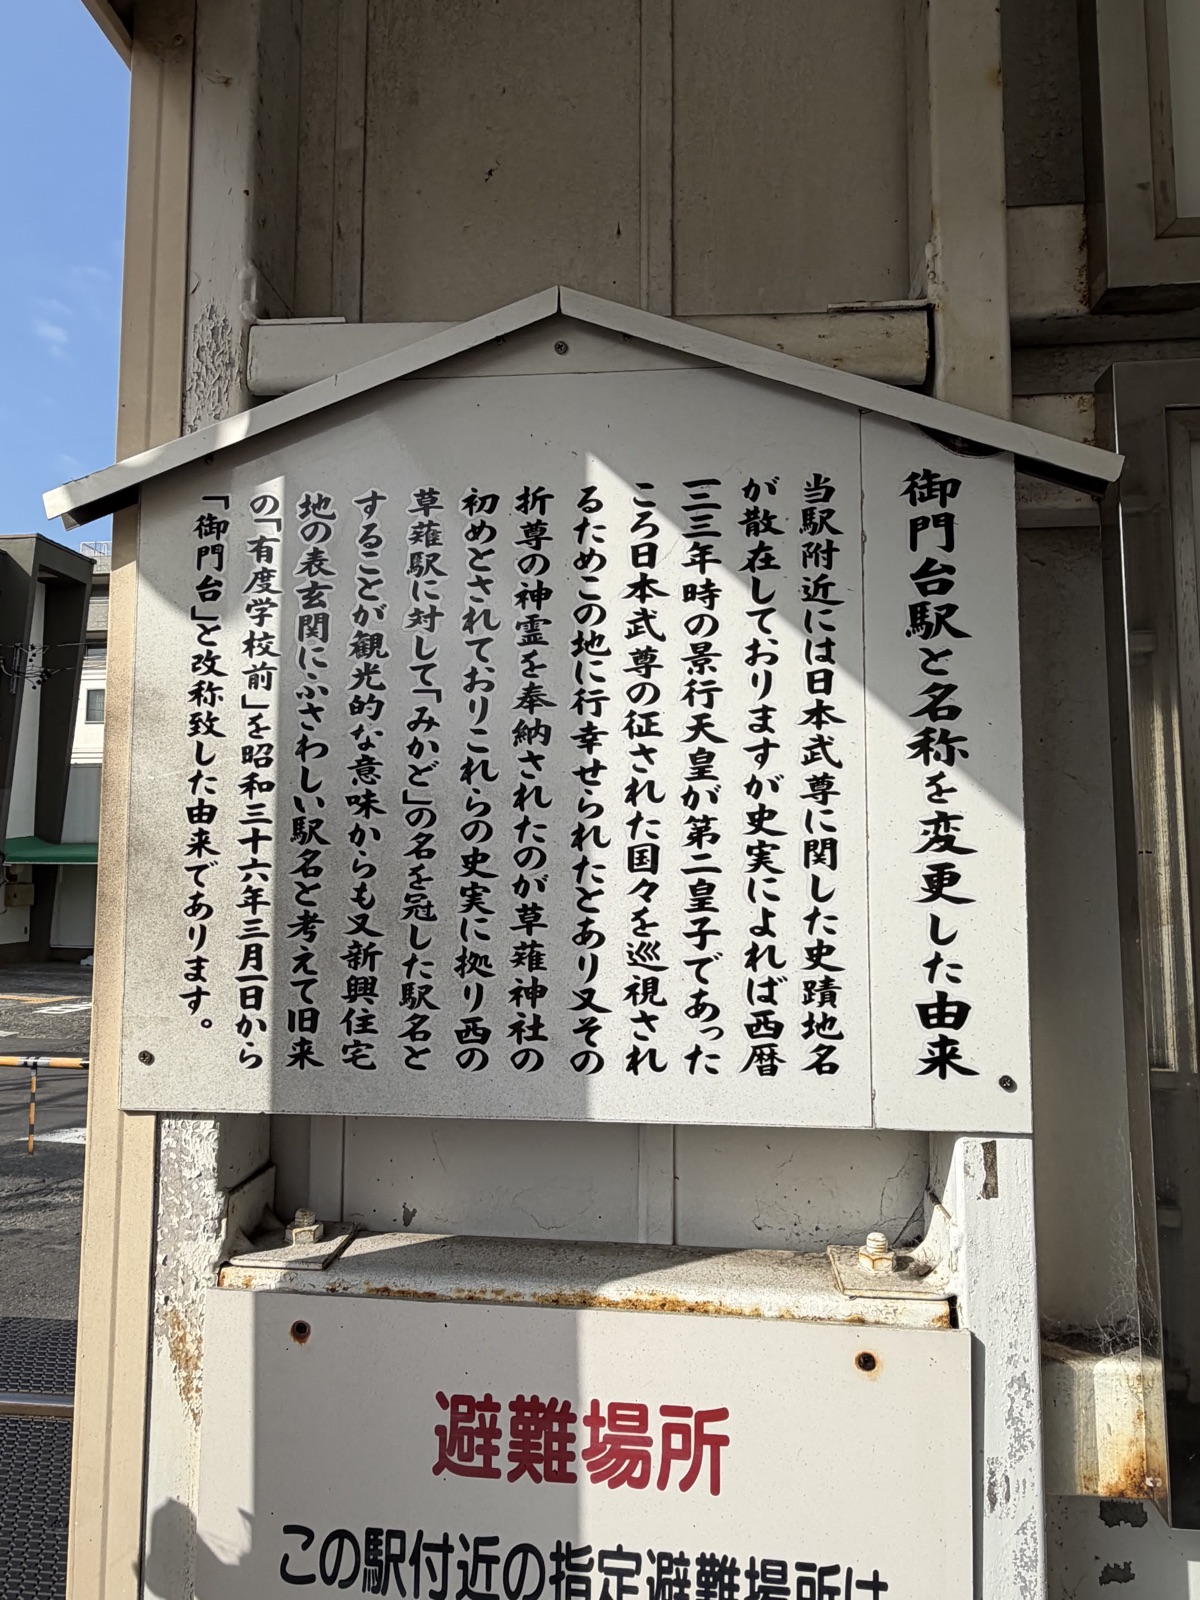 御門台駅と名称を変更した由来
当駅附近には日本武尊に関した史蹟地名
が散在しておりますが史実によれば西暦
一三三年時の景行天皇が第二皇子であった
ころ日本武尊の征された国々を巡視され
るためこの地に行幸せられたとあり又その
折尊の神霊を奉納されたのが草薙神社の
初めとされておりこれらの史実に拠り西の
草薙駅に対して「みかど」の名を冠した駅名と
することが観光的な意味からも又新興住宅
地の表玄関にふさわしい駅名と考えて旧来
の「有度学校前」を昭和三十六年三月一日から
「御門台」と改称致した由来であります。
避難場所
この駅付近の指定避難場所は